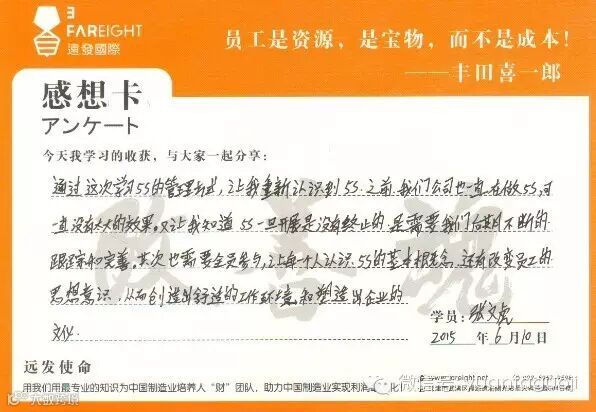 FAREIGHT
遠發國際
员工是资源，是宝物，而不是成本！
——丰田喜一郎
感想卡
アンケート
今天我学习的收获，与大家一起分享：
通过这次学习5S的管理
让我重新认识到5S。之前我们公司也一直在做5S，可
一直没有太大的效果。又让我知道5S一旦开展是没有终止的，是需要我们后期不断的
跟踪和完善。其次也需要全员参与，让每个人认识5S的基本概念，还有改变员工的
思想意识，从而创造出舒适的工作环境，和塑造出企业的
文化。
改善魂
学员：张文虎
2015年6月10日
远发使命
用我们用最专业的知识为中国制造业培养人“财”团队，助力中国制造业实现利润
www.fareight.net
微信号：
大数跨境